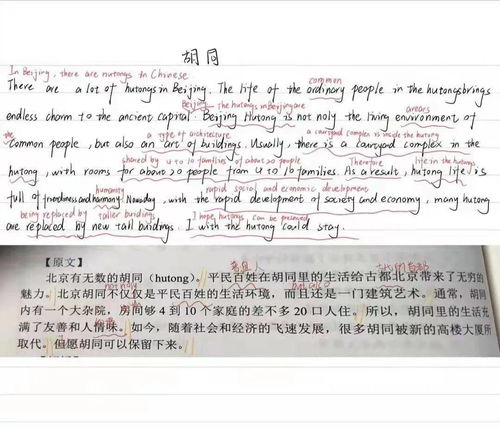 胡同
In Beijing, there are hutongs in Chinese
There are a lot of hutongs in Beijing. The life of the ordinary people in the hutongs brings
common
endless charm to the ancient capital. Beijing Hutong is not noly the living environment of
Beijing the hutongs in Beijing are
the common people, but also an art of buildings. Usually, there is a courtyard complex in the
a type of architecture a courtyard complex is inside the hutong
hutong, with rooms for about 20 people from 4 to 10 families. As a result, hutong life is
shared by 4 to 10 families of about 20 people Therefore life in the hutongs
full of friendness and harmony. Nowaday, with the rapid development of society and economy, many hutong
humanity rapid social and economic development
are replaced by new tall buildings. I with the hutong could stay.
being replaced by taller buildings I hope hutongs can be preserved
【原文】
北京有无数的胡同(hutong)。平民百姓在胡同里的生活给古都北京带来了无穷的
魅力。北京胡同不仅仅是平民百姓的生活环境,而且还是一门建筑艺术。通常,胡同
not only but also
内有一个大杂院,房间够4到10个家庭的差不多20口人住。所以,胡同里的生活充
满了友善和人情味。如今,随着社会和经济的飞速发展,很多胡同被新的高楼大厦所
取代。但愿胡同可以保留下来。